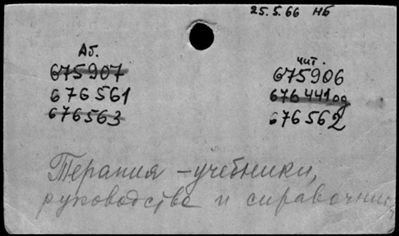 25.5.66 НБ
Аб. чит.
675907 675906
676561 676441од
676563 676562
Терапия – учебники,
руководства и справочни